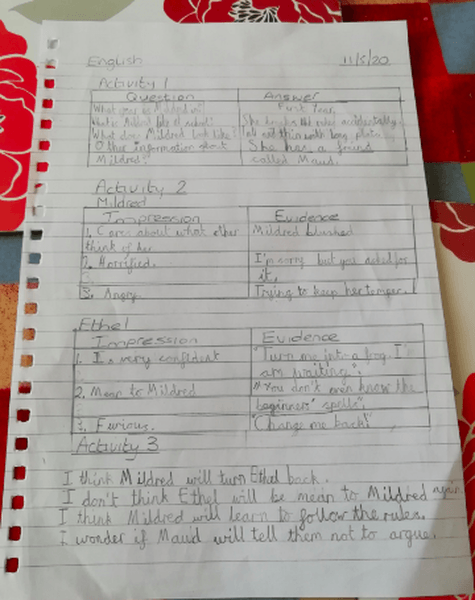 English 11/5/20
Activity 1
Question Answer
What year is Mildred in? First Year.
What is Mildred like at school? She breaks the rules accidentally.
What does Mildred look like? Tall and thin with long plaits
Other information about She has a friend
Mildred? called Maud.
Activity 2
Mildred
Impression Evidence
1. Cares about what other Mildred blushed
think of her
2. Horrified. I'm sorry but you asked for
it.
3. Angry. Trying to keep her temper.
Ethel
Impression Evidence
1. Is very confident "Turn me into a frog. I'm
am waiting".
2. Mean to Mildred "You don't even know the
beginners' spells".
3. Furious. "Change me back!"
Activity 3
I think Mildred will turn Ethel back.
I don't think Ethel will be mean to Mildred again.
I think Mildred will learn to follow the rules.
I wonder if Maud will tell them not to argue.